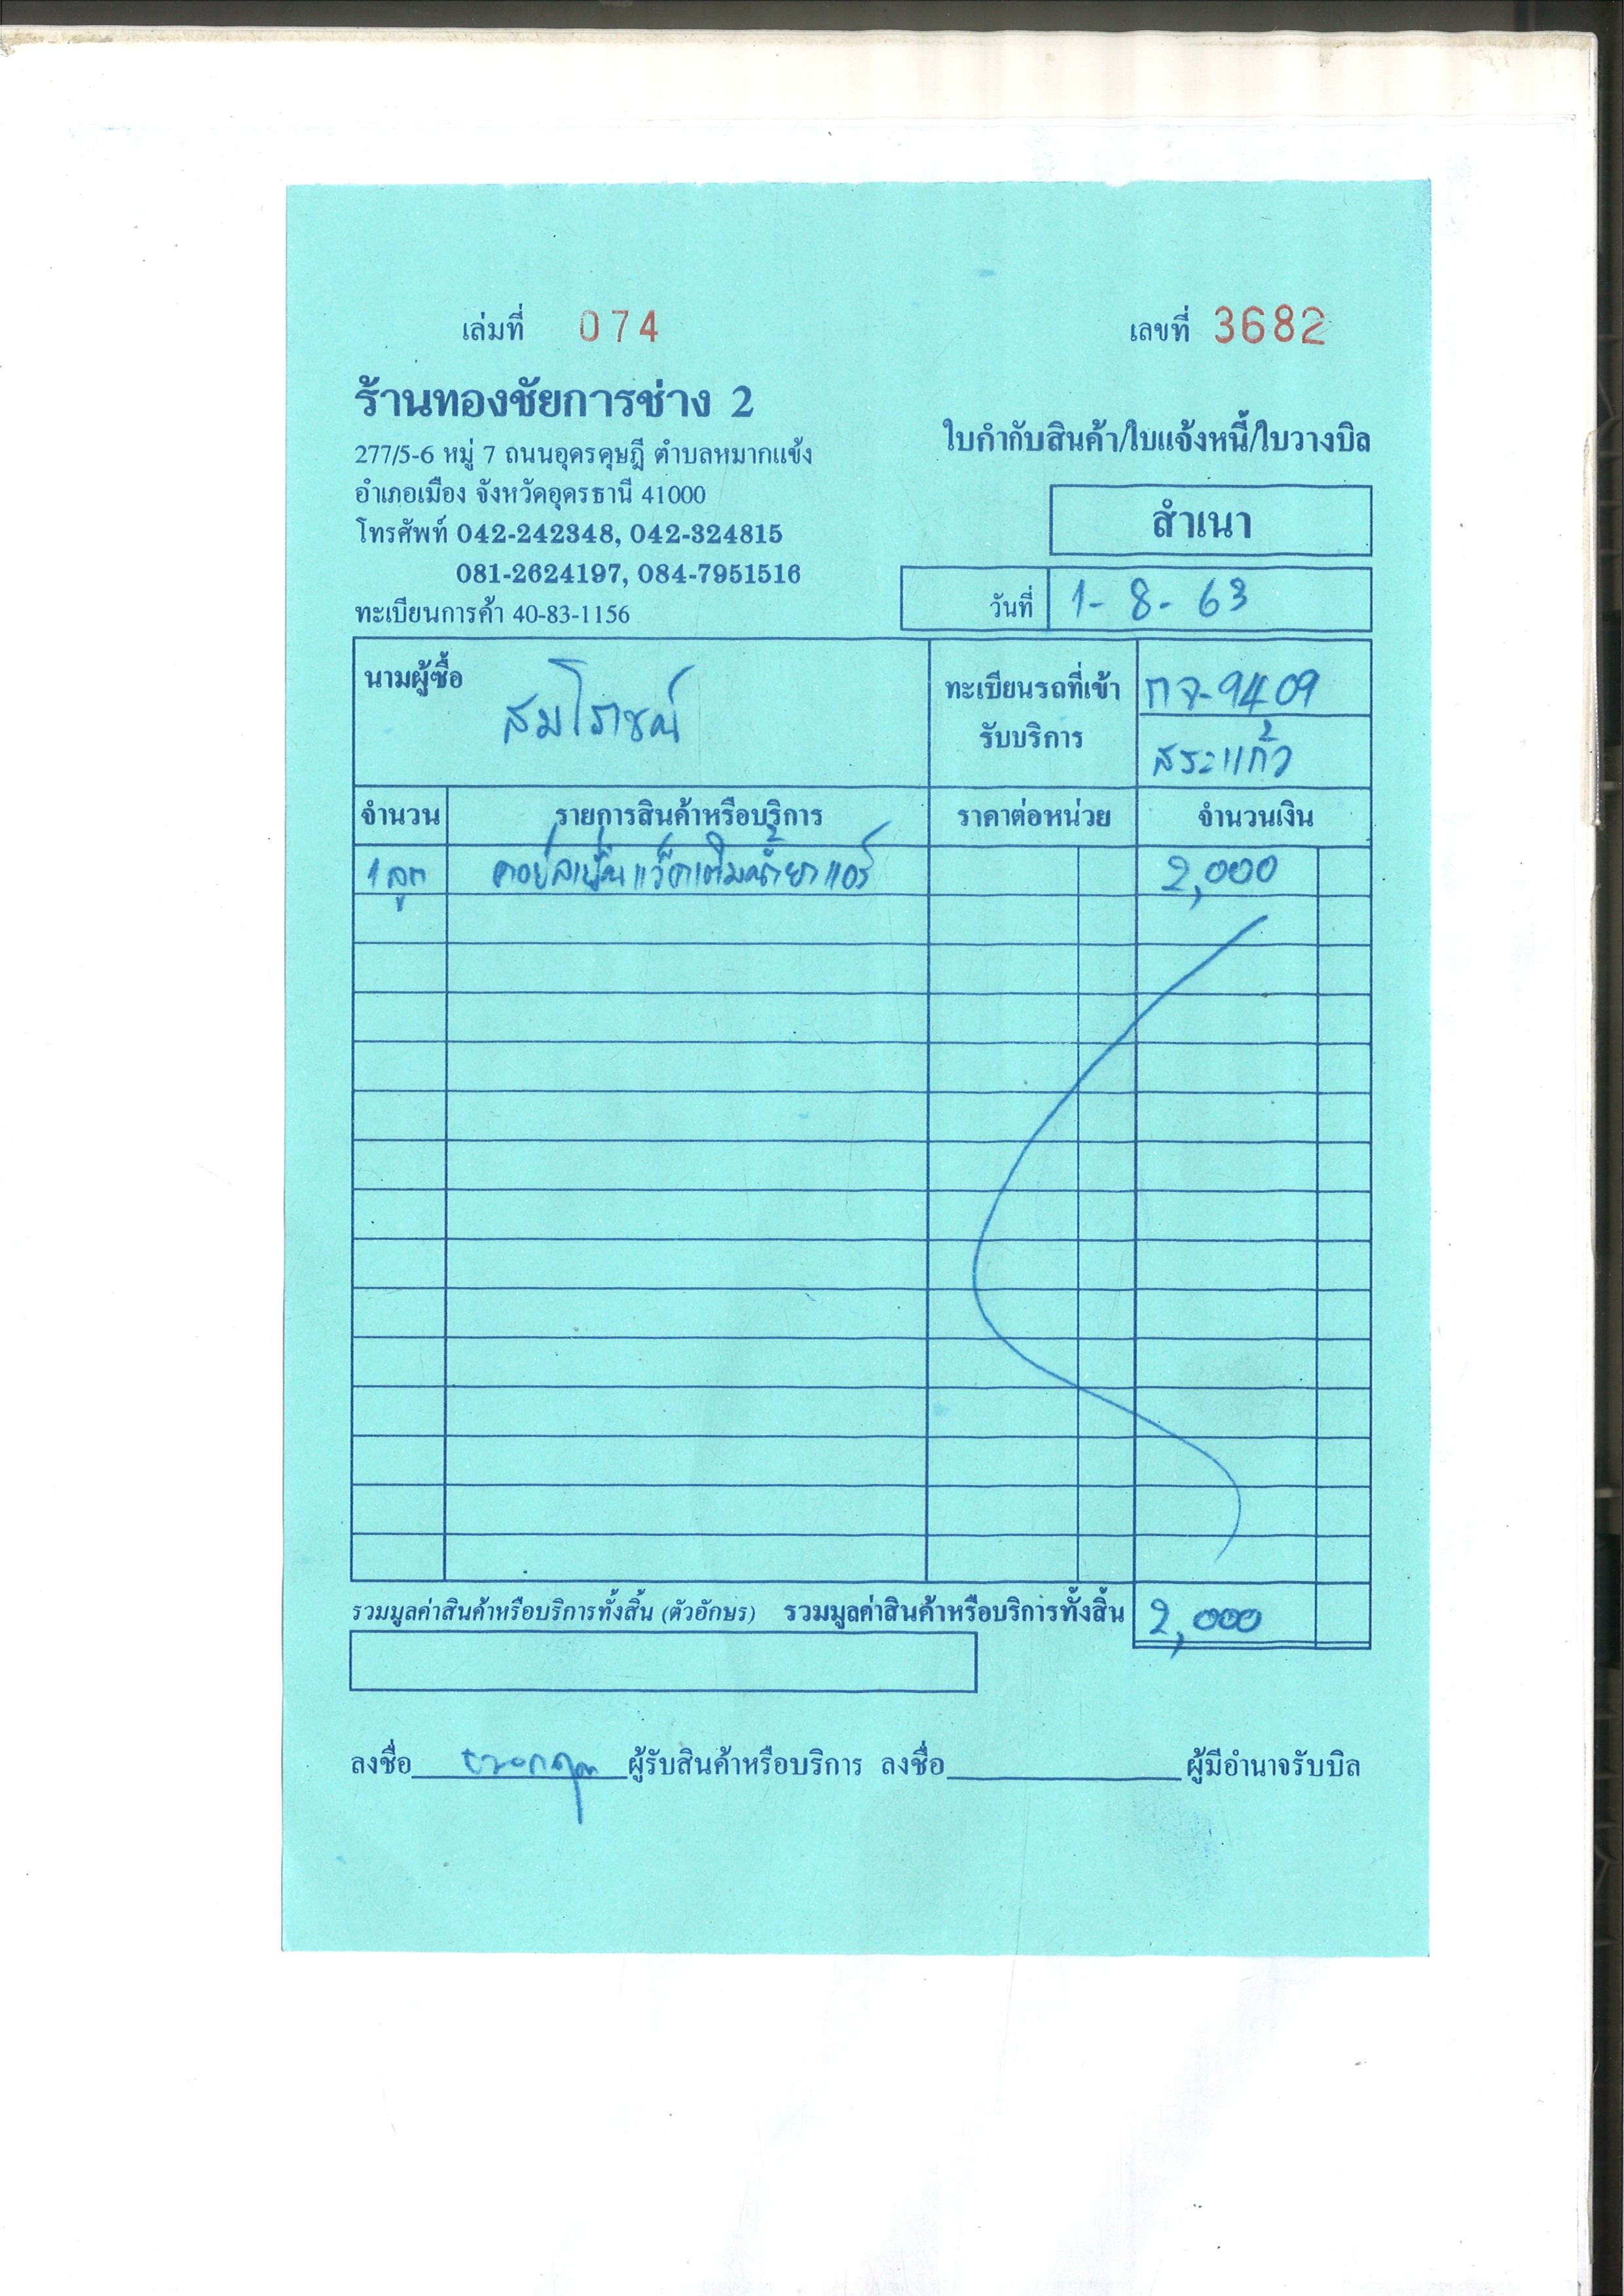 เล่มที่ 074 เลขที่ 3682
ร้านทองชัยการช่าง 2
277/5-6 หมู่ 7 ถนนอุดรดุษฎี ตำบลหมากแข้ง
อำเภอเมือง จังหวัดอุดรธานี 41000
โทรศัพท์ 042-242348, 042-324815
081-2624197, 084-7951516
ทะเบียนการค้า 40-83-1156
ใบกำกับสินค้า/ใบแจ้งหนี้/ใบวางบิล
สำเนา
วันที่ 1-8-63
นามผู้ซื้อ สมโรชณ์
ทะเบียนรถที่เข้า กจ-9409
รับบริการ สระแก้ว
จำนวน รายการสินค้าหรือบริการ ราคาต่อหน่วย จำนวนเงิน
1 ลูก แว็คเติมน้ำยาแอร์ 2,000
รวมมูลค่าสินค้าหรือบริการทั้งสิ้น (ตัวอักษร) รวมมูลค่าสินค้าหรือบริการทั้งสิ้น 2,000
ลงชื่อ ผู้รับสินค้าหรือบริการ ลงชื่อ ผู้มีอำนาจรับบิล